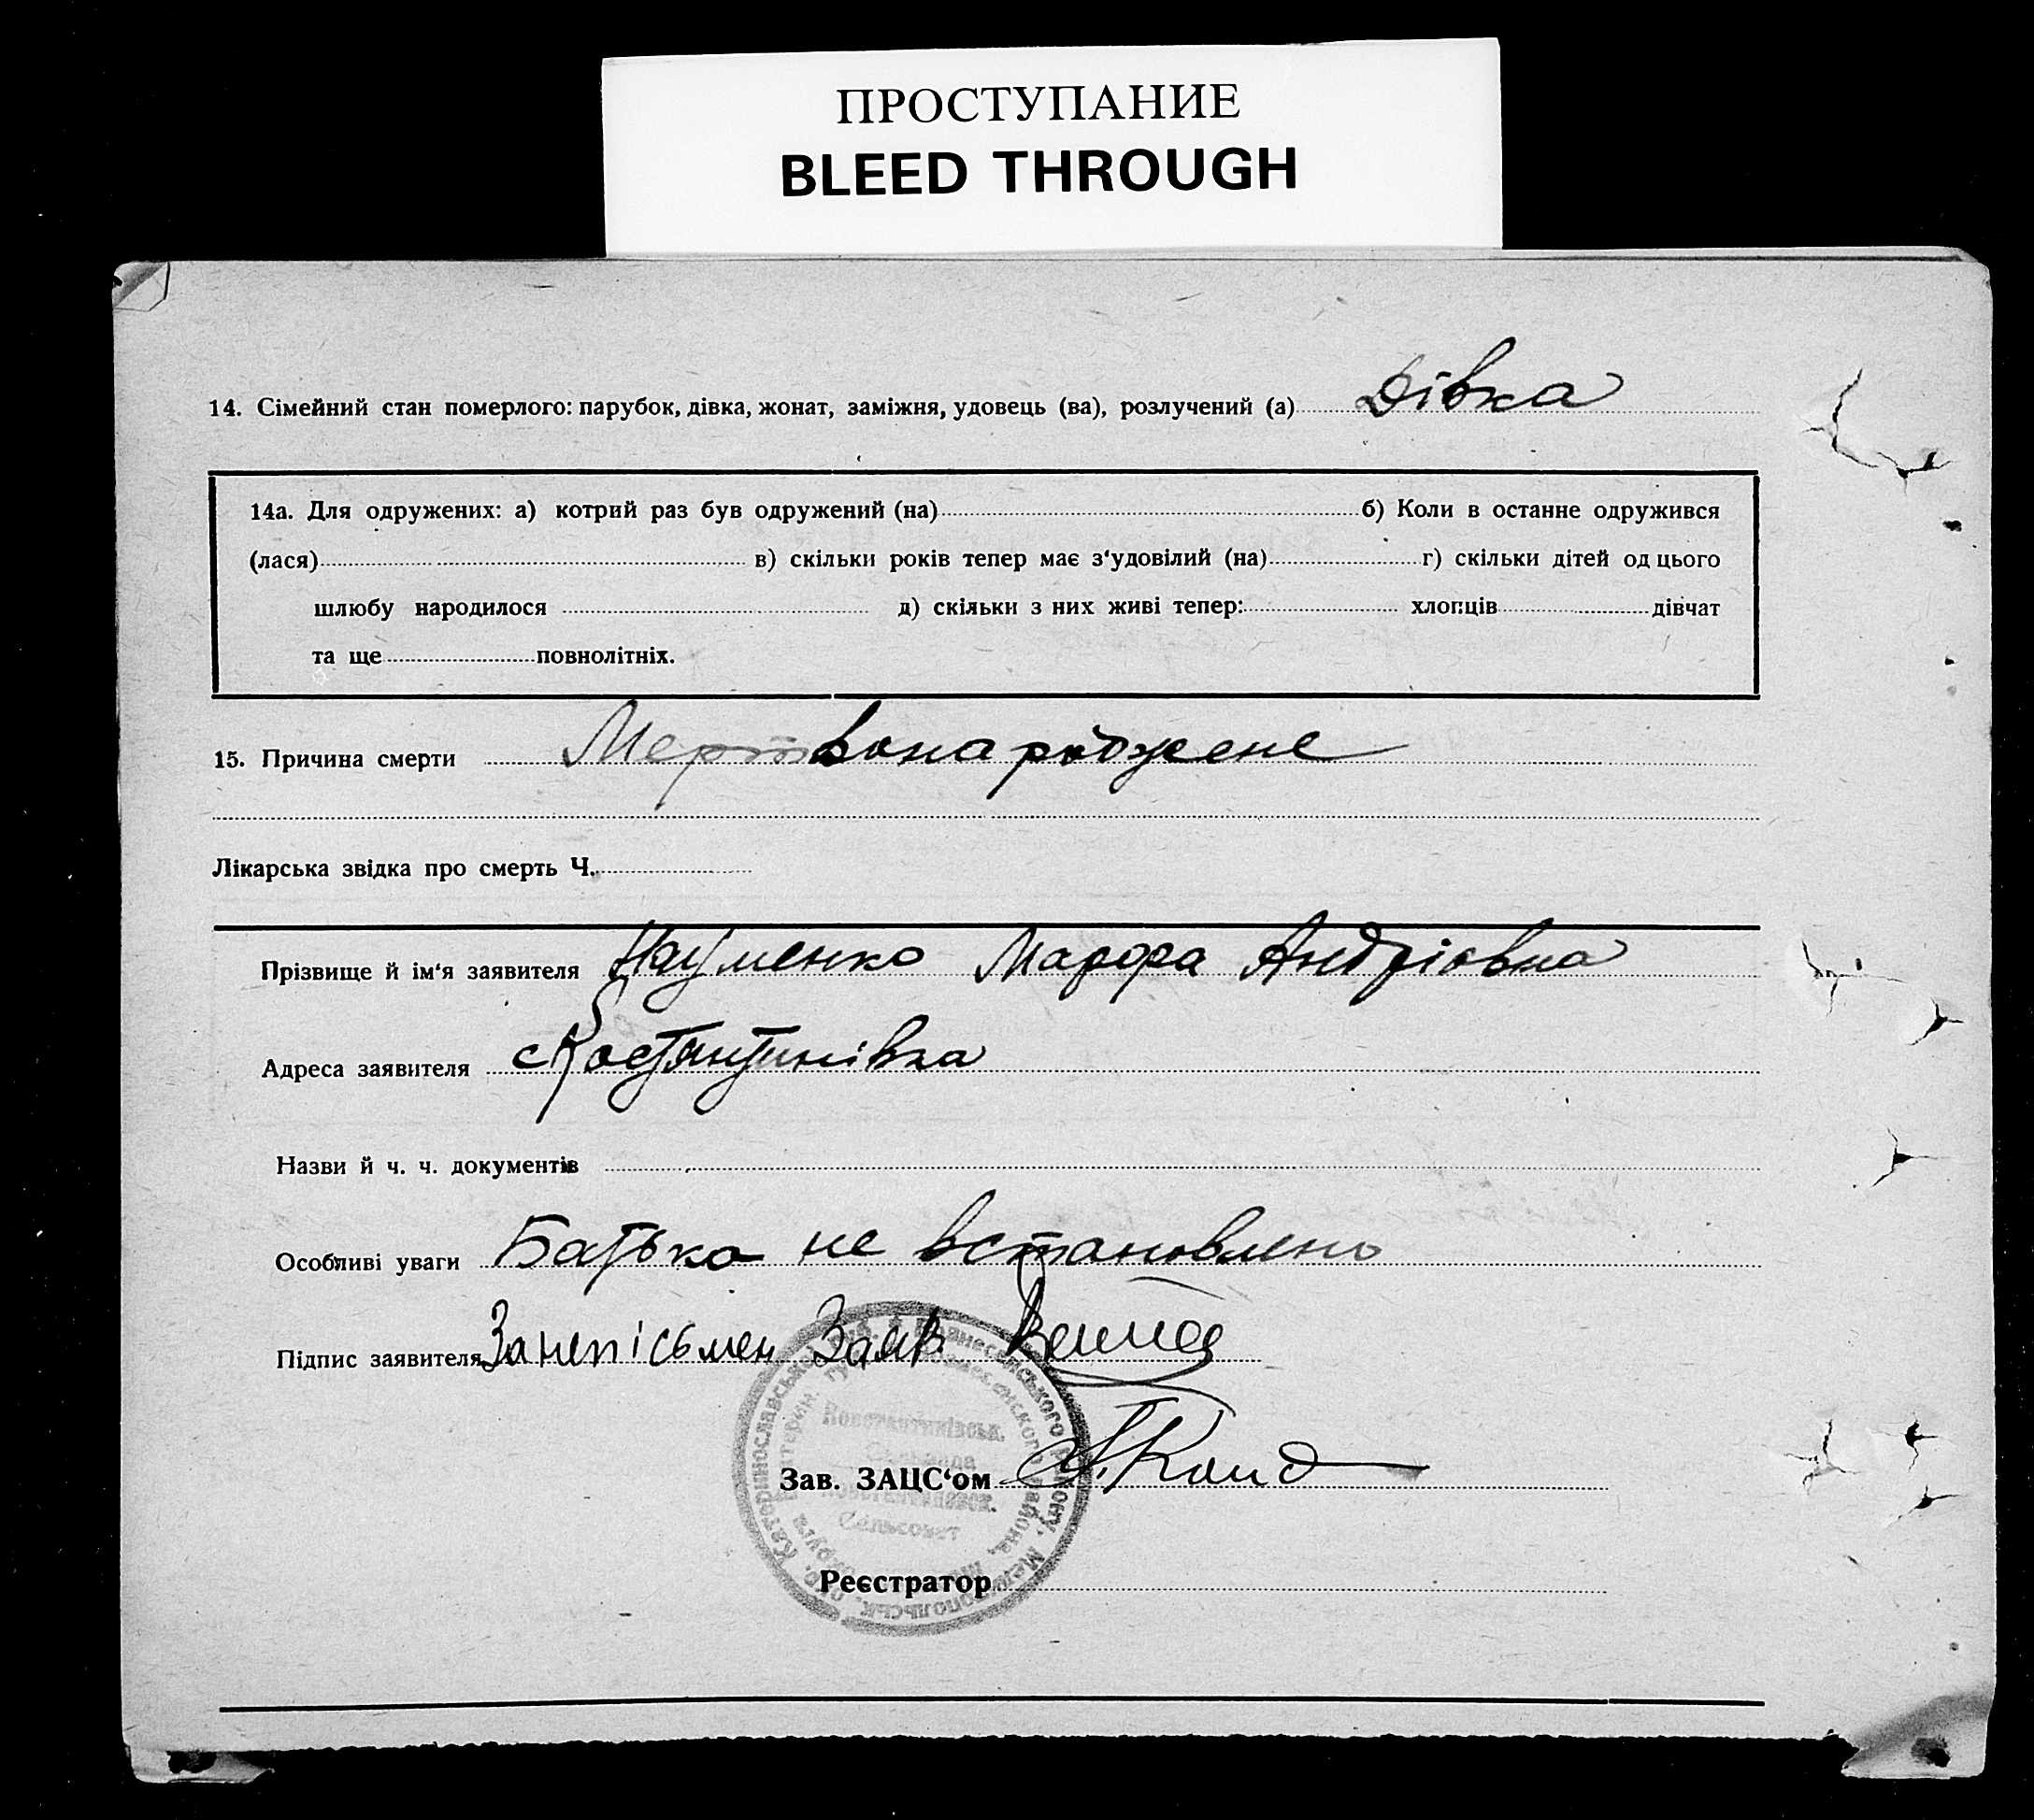 ПРОСТУПАНИЕ
BLEED THROUGH
14. Сімейний стан померлого: парубок, дівка, жонат, заміжня, удовець (ва), розлучений (а) Дівка
14а. Для одружених: а) котрий раз був одружений (на) б) Коли в останне одружився
(лася) в) скільки років тепер має з‘удовілий (на) г) скільки дітей од цього
шлюбу народилося д) скільки з них живі тепер: хлопців дівчат
та ще повнолітніх.
15. Причина смерти Мертвонарожене
Лікарська звідка про смерть Ч.
Прізвище й ім‘я заявителя Науменко Марфа Андріовна
Адреса заявителя с Костянтинівка
Назви й ч. ч. документів
Особливі уваги Батька не встановлено
Підпис заявителя За неписьмен Заяв
Зав. ЗАЦС‘ом
Реєстратор
Константинівськ.
Сельрада
Константиновск.
Сельсовет